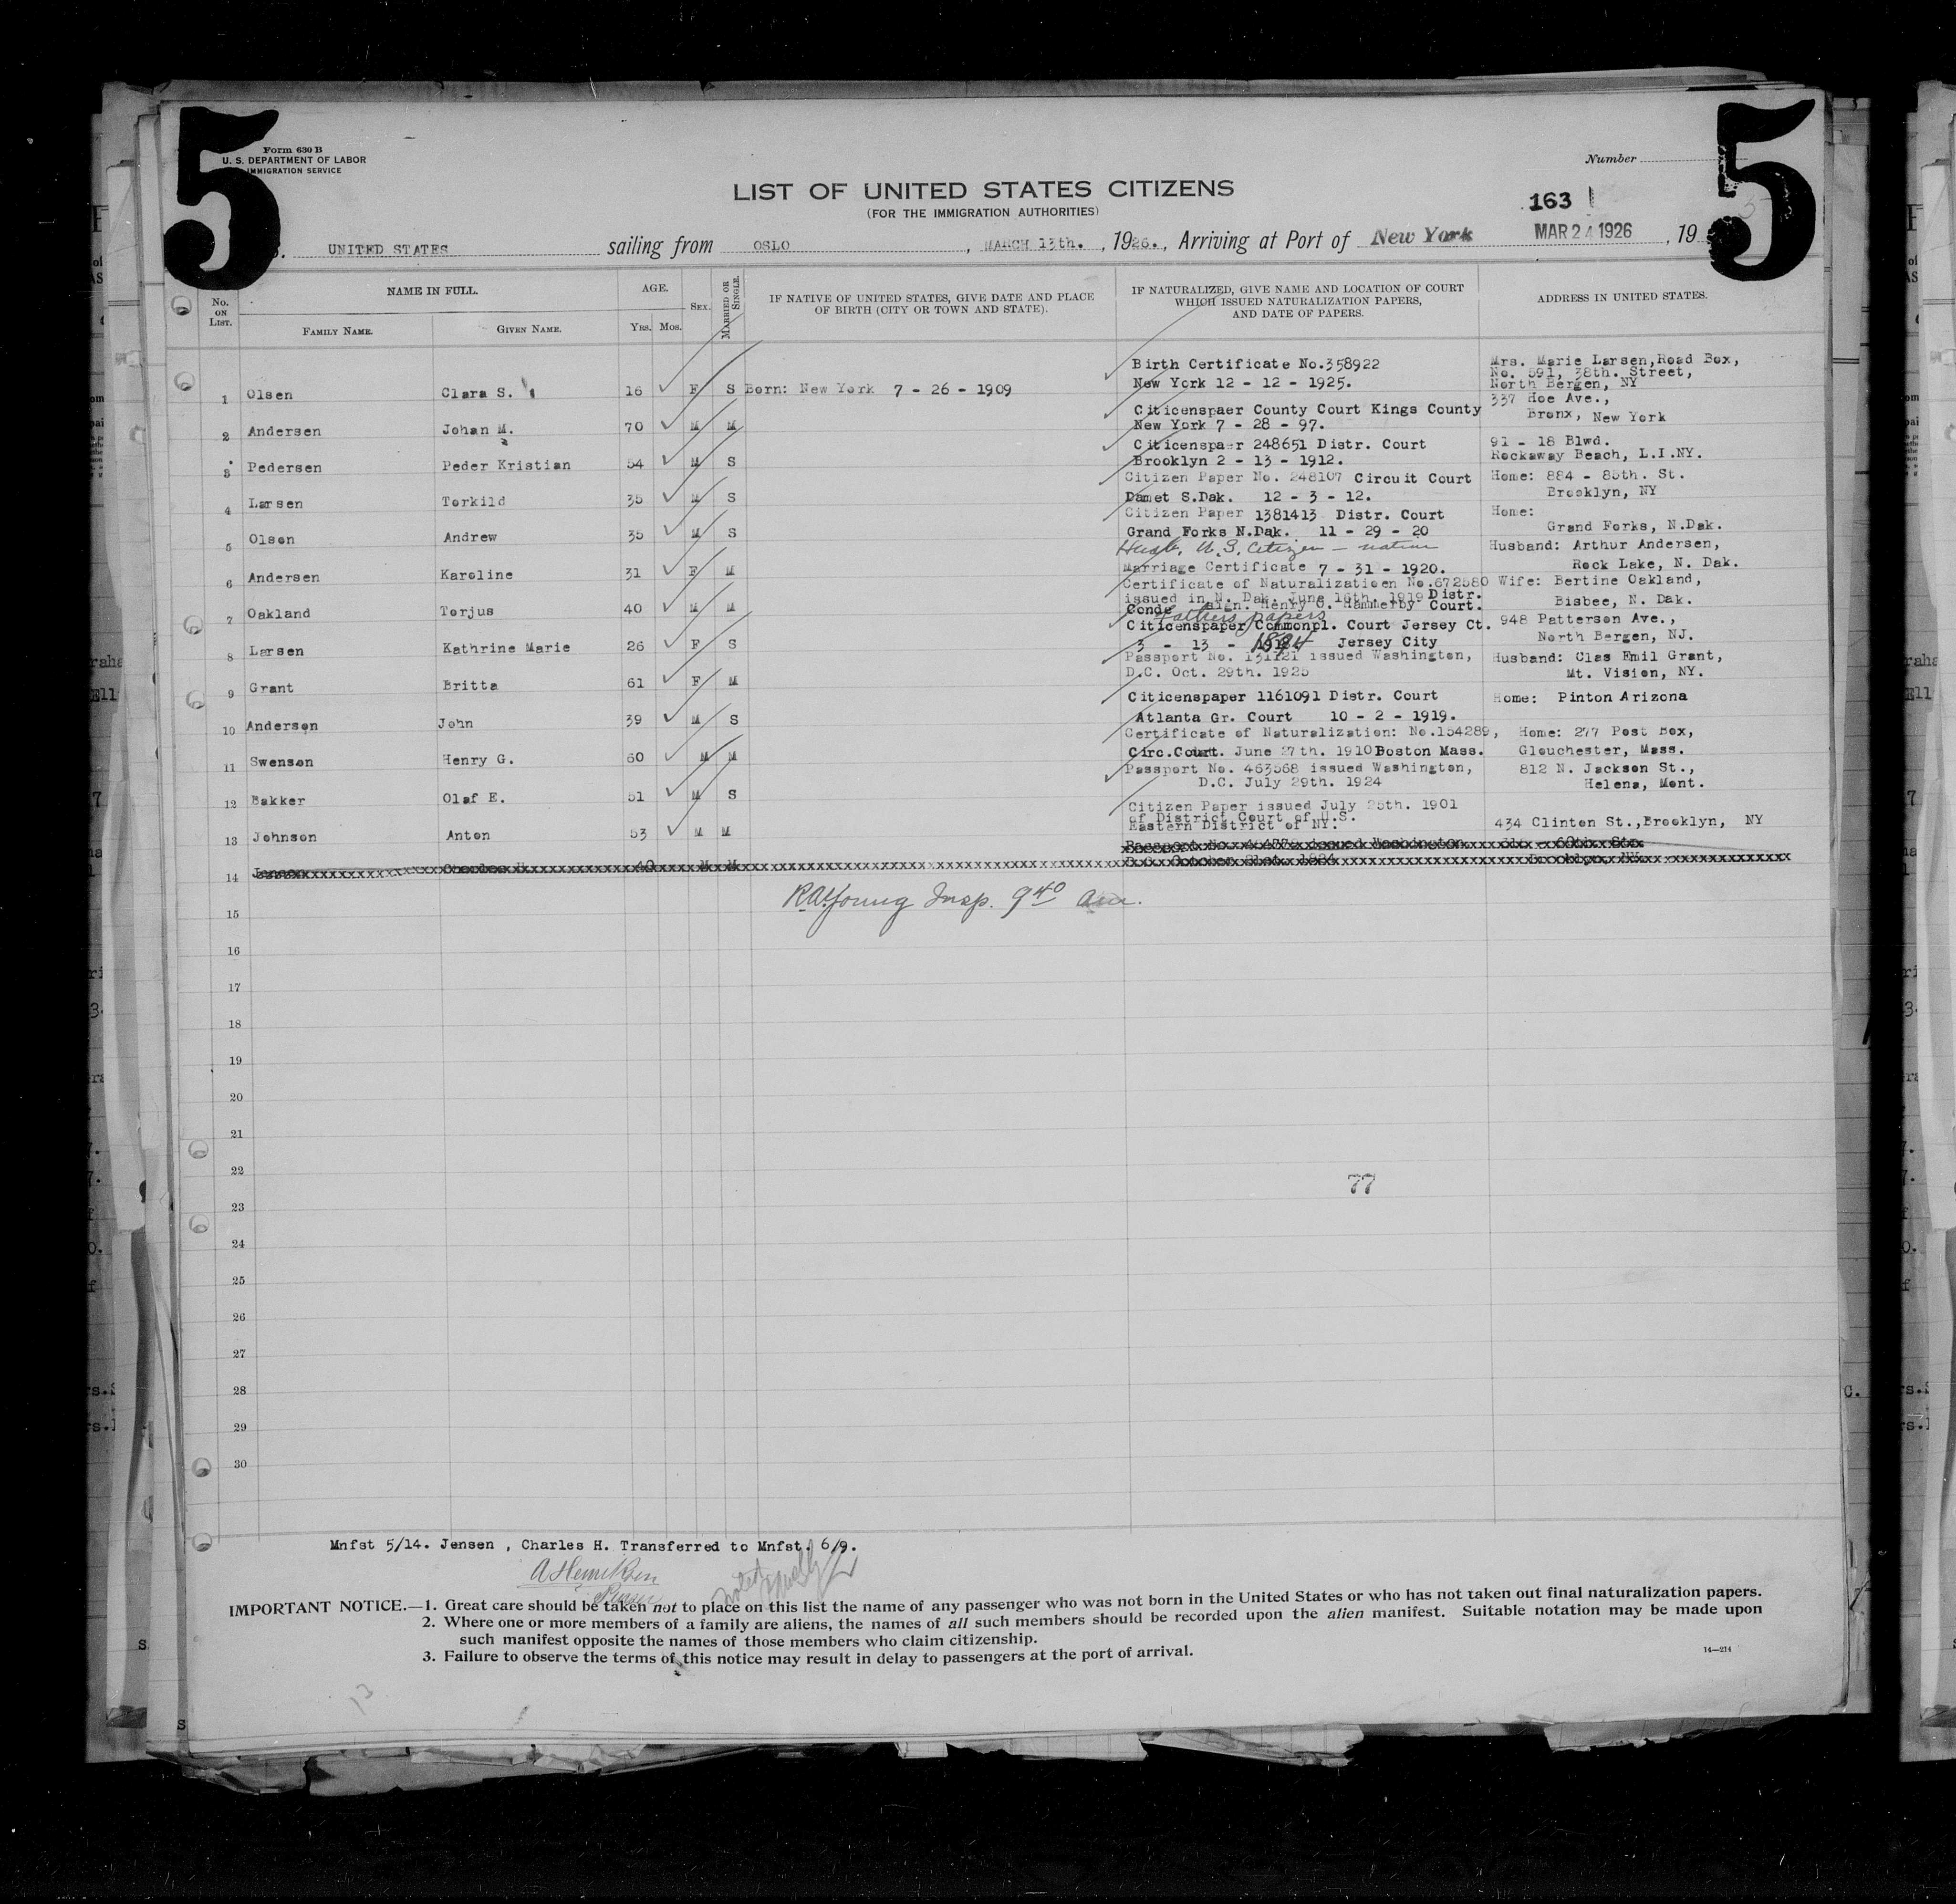 5
5
Form 630 B
U. S. DEPARTMENT OF LABOR
IMMIGRATION SERVICE
Number
LIST OF UNITED STATES CITIZENS
(FOR THE IMMIGRATION AUTHORITIES)
163
UNITED STATES sailing from OSLO, MARCH 13th., 1926., Arriving at Port of New York MAR 24 1926, 19
No. ON LIST.
NAME IN FULL.
FAMILY NAME.
GIVEN NAME.
AGE.
YRS. MOS.
SEX.
MARRIED OR SINGLE.
IF NATIVE OF UNITED STATES, GIVE DATE AND PLACE
OF BIRTH (CITY OR TOWN AND STATE).
IF NATURALIZED, GIVE NAME AND LOCATION OF COURT
WHICH ISSUED NATURALIZATION PAPERS,
AND DATE OF PAPERS.
ADDRESS IN UNITED STATES.
Birth Certificate No.358922 Mrs. Marie Larsen,Road Box,
No. 591, 38th. Street,
1 Olsen Clara S. 16 F S Born: New York 7 - 26 - 1909 New York 12 - 12 - 1925. North Bergen, NY
Citicenspaer County Court Kings County 337 Hoe Ave.,
2 Andersen Johan M. 70 M M New York 7 - 28 - 97. Bronx, New York
Citicenspaer 248651 Distr. Court 91 - 18 Blwd.
3 Pedersen Peder Kristian 54 M S Brooklyn 2 - 13 - 1912. Rockaway Beach, L.I.NY.
Citizen Paper No. 248107 Circuit Court Home: 884 - 85th. St.
4 Larsen Torkild 35 M S Damet S.Dak. 12 - 3 - 12. Brooklyn, NY
Citizen Paper 1381413 Distr. Court Home:
5 Olson Andrew 35 M S Grand Forks N.Dak. 11 - 29 - 20 Grand Forks, N.Dak.
Husb. U.S. Citizen - native Husband: Arthur Andersen,
6 Andersen Karoline 31 F M Marriage Certificate 7 - 31 - 1920. Rock Lake, N. Dak.
Certificate of Naturalizatioen No.672580 Wife: Bertine Oakland,
issued in N. Dak. June 16th. 1919 Distr.
7 Oakland Torjus 40 M M Conde sign. Henry G. Hammerby Court. Bisbee, N. Dak.
Fathers papers
Citicenspaper Commonpl. Court Jersey Ct. 948 Patterson Ave.,
8 Larsen Kathrine Marie 26 F S 3 - 13 - 1894 Jersey City North Bergen, NJ.
Passport No. 131121 issued Washington, Husband: Clas Emil Grant,
9 Grant Britta 61 F M D.C. Oct. 29th. 1925 Mt. Vision, NY.
Citicenspaper 1161091 Distr. Court Home: Pinton Arizona
10 Anderson John 39 M S Atlanta Gr. Court 10 - 2 - 1919.
Certificate of Naturalization: No.154289, Home: 277 Post Box,
11 Swenson Henry G. 60 M M Circ.Court. June 27th. 1910 Boston Mass. Glouchester, Mass.
Passport No. 463568 issued Washington, 812 N. Jackson St.,
12 Bakker Olaf E. 51 M S D.C. July 29th. 1924 Helena, Mont.
Citizen Paper issued July 25th. 1901
of District Court of U.S.
13 Johnson Anton 53 M M Eastern District of NY. 434 Clinton St.,Brooklyn, NY
Passport No. issued Washington 60th. St.
14 Jensen Charles H. 40 M M D.C. October 31st. 1924 Brooklyn, NY.
15
R.A. Young Insp. 9 40 am.
16
17
18
19
20
21
22
77
23
24
25
26
27
28
29
30
Mnfst 5/14. Jensen , Charles H. Transferred to Mnfst. 6/9.
A Henriksen
Purser
IMPORTANT NOTICE.—1. Great care should be taken not to place on this list the name of any passenger who was not born in the United States or who has not taken out final naturalization papers.
2. Where one or more members of a family are aliens, the names of all such members should be recorded upon the alien manifest. Suitable notation may be made upon
such manifest opposite the names of those members who claim citizenship.
3. Failure to observe the terms of this notice may result in delay to passengers at the port of arrival.
14—214
13